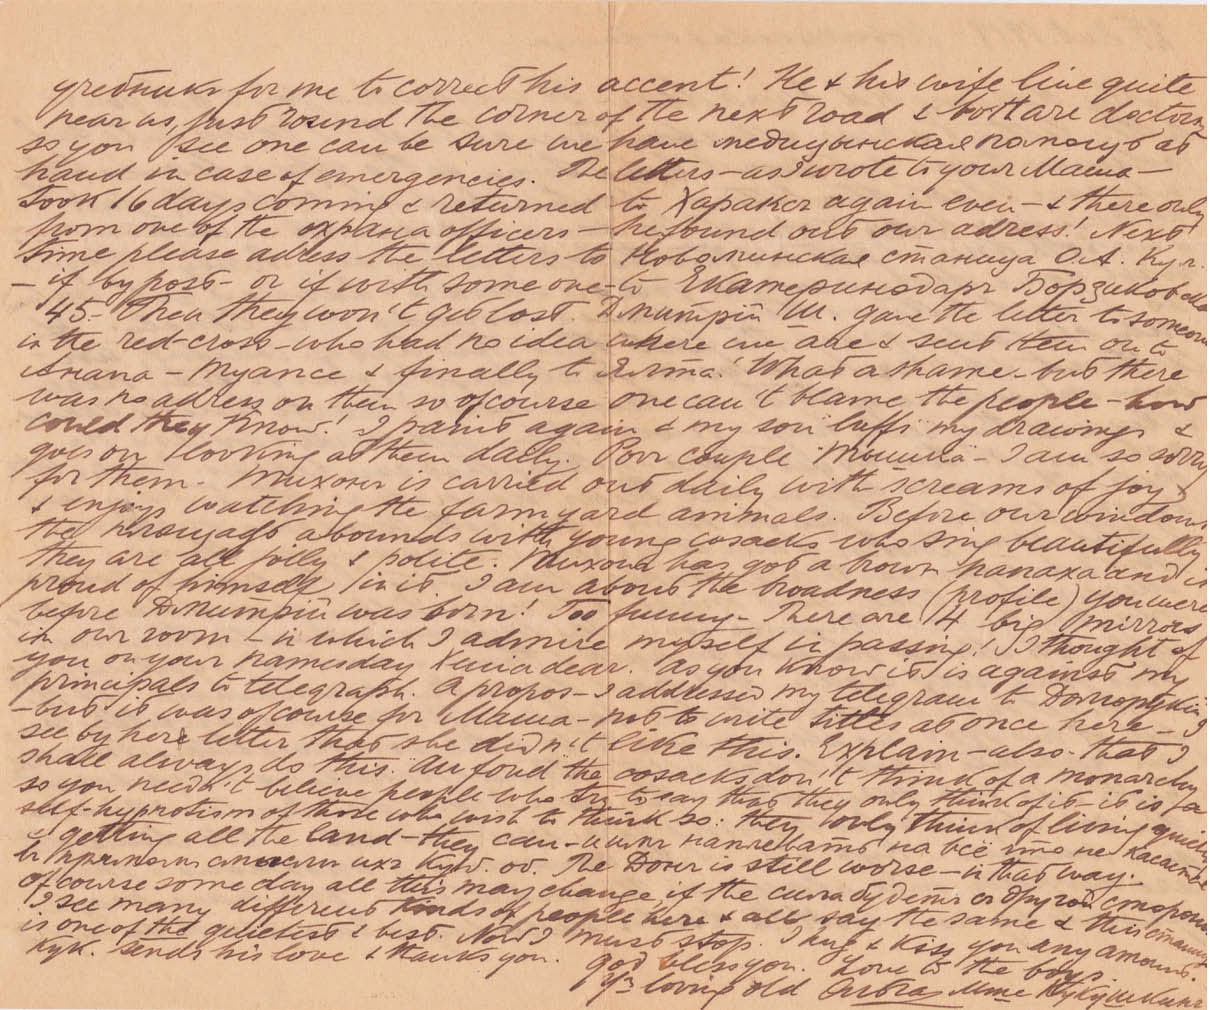 учебники for me to correct his accent! He & his wife live quite
near us, just round the corner of the next road & both are doctors
so you see one can be sure we have медицынская помощь at
hand in case of emergencies. The letters – as I wrote to your Маша –
took 16 days coming & returned to Харакс again even – & there only
from one of the охрана officers – he found out our adress! Next
time please adress the letters to Новоминская станица О.А. Кул.
– if by post – or if with someone to Екатеринодаръ Борзиковская
45. – Then they won't get lost. Дмитрій Ш. gave the letter to someone
in the red-cross – who had no idea where we are & sent them on to
Анапа – Туапсе & finally to Ялта! What a shame – but there
was no adress on them so of course one can't blame the people – how
could they know! I paint again & my son luffs my drawings &
goes on looking at them daily. Poor couple – I am so sorry
for them. – Тихонъ is carried out daily with screams of joy
& enjoys watching the farmyard animals. Before our windows
the abounds with young cosacks who sing beautifully
they are all jolly & polite. Тихонъ has got a brown папаха and is
proud of himself in it. I am about the broadness (profile) you were
before Дмитрій was born! Too funny – There are 4 big mirrors
in our room – in which I admire myself in passing! I thought of
you on your namesday Ксенія dear. As you know it is against my
principals to telegraph. A propos – I addressed my telegram to
– but it was of course for Маша – not to write titles at once here – I
see by her letter that she didn't like this. Explain – also – that I
shall always do this. Au fond the cosacks don't think of a monarchy
so you needn't believe people who try to say that they only think of it – it is a
self-hypnotism of those who wish to think so: they only think of living quietly
& getting all the land – they can – имъ наплевать на всё что не касается
их Куб. об. The Донъ is still worse – in that way.
Of course some day all this may change if the сила будетъ съ другой стороны
I see many different kinds of people here & all say the same & this станица
is one of the quietest & best. Now I must stop. I hug & kiss you any amount.
Кук. sends his love & thanks you. God bless you. Love to the boys.
Yr loving old Ольга Mme Кукушкина